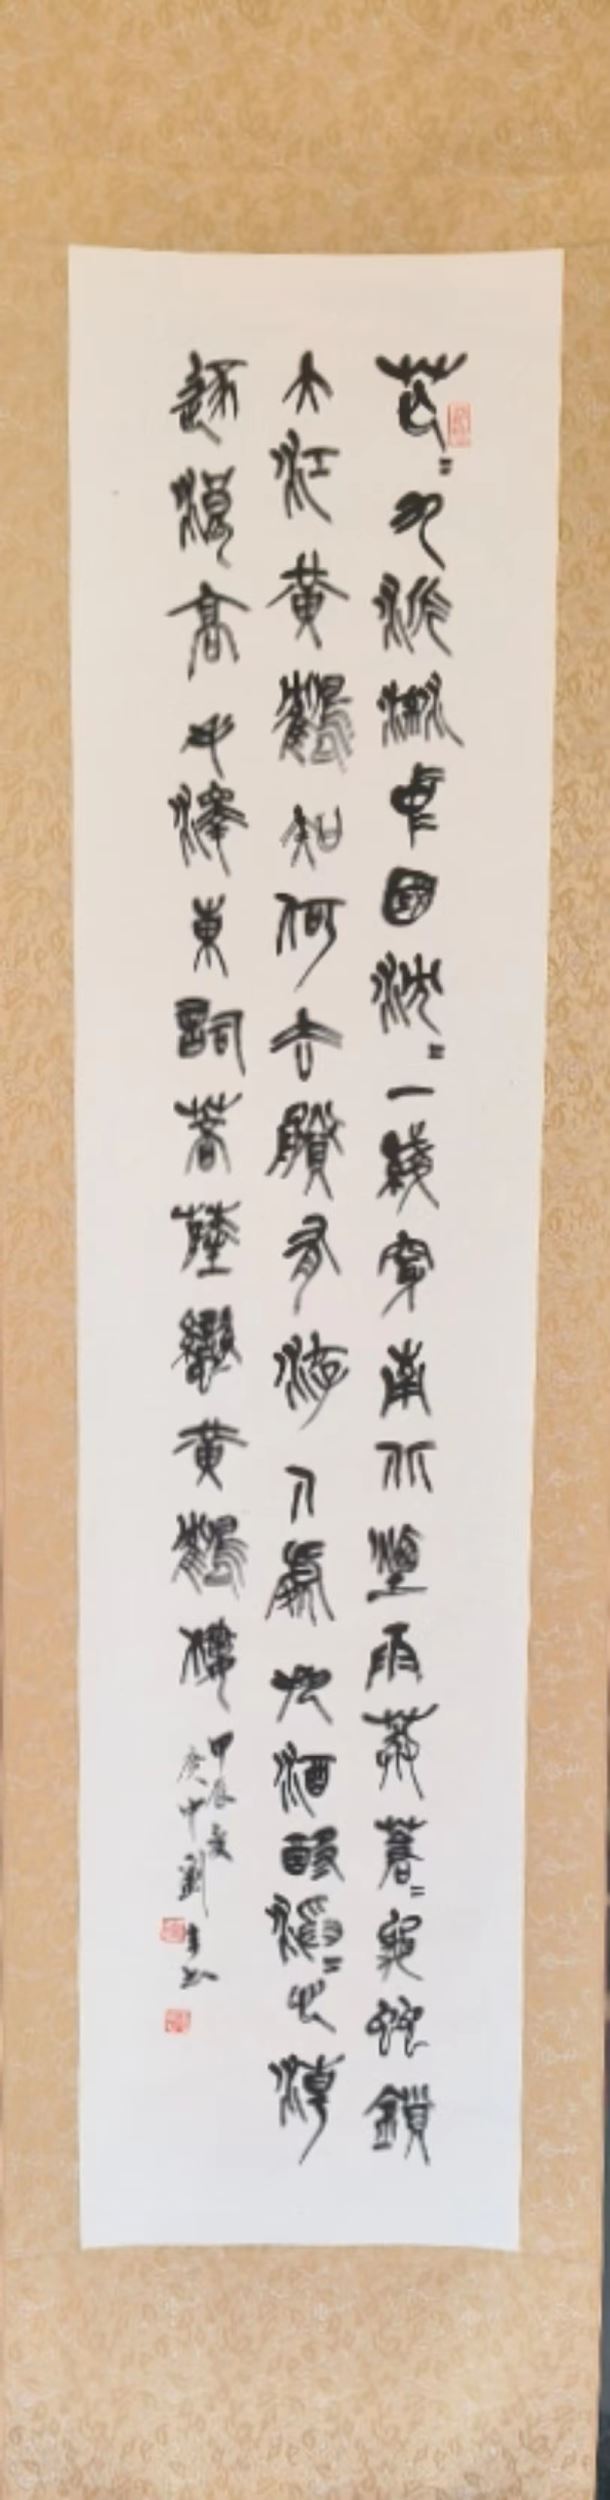 茫〻九派流中國沈〻一綫穿南北煙雨莽蒼〻龜蛇鎖
大江黃鶴知何去賸有游人處把酒酹滔〻心潮
逐浪高毛澤東詞菩薩蠻黃鶴樓
甲辰夏